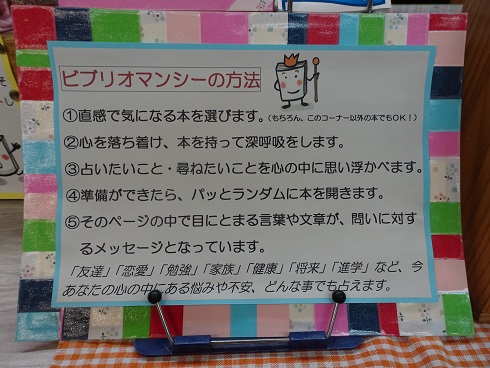 ビブリオマンシーの方法
①直感で気になる本を選びます。(もちろん、このコーナー以外の本でもOK!)
②心を落ち着け、本を持って深呼吸をします。
③占いたいこと・尋ねたいことを心の中に思い浮かべます。
④準備ができたら、パッとランダムに本を開きます。
⑤そのページの中で目にとまる言葉や文章が、問いに対す
るメッセージとなっています。
「友達」「恋愛」「勉強」「家族」「健康」「将来」「進学」など、今
あなたの心の中にある悩みや不安、どんな事でも占えます。